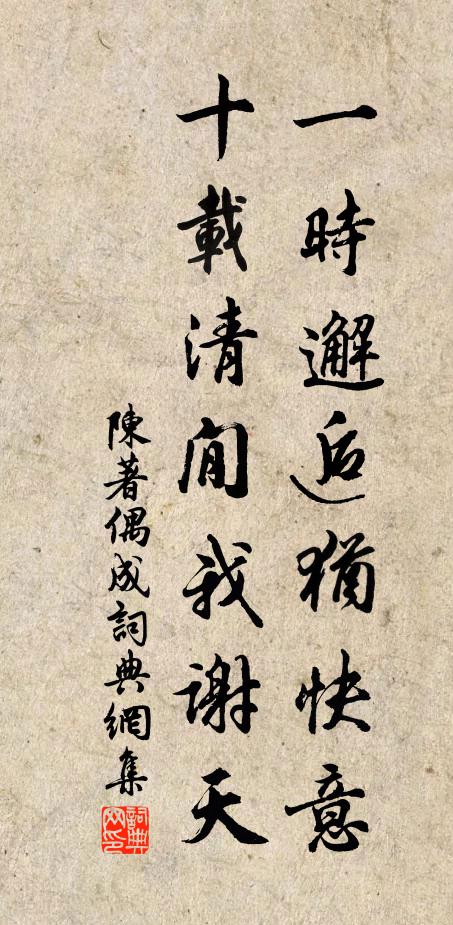 一時邂逅猶快意
十載清閒我謝天
陳著偶成詞典網集
詞典网印